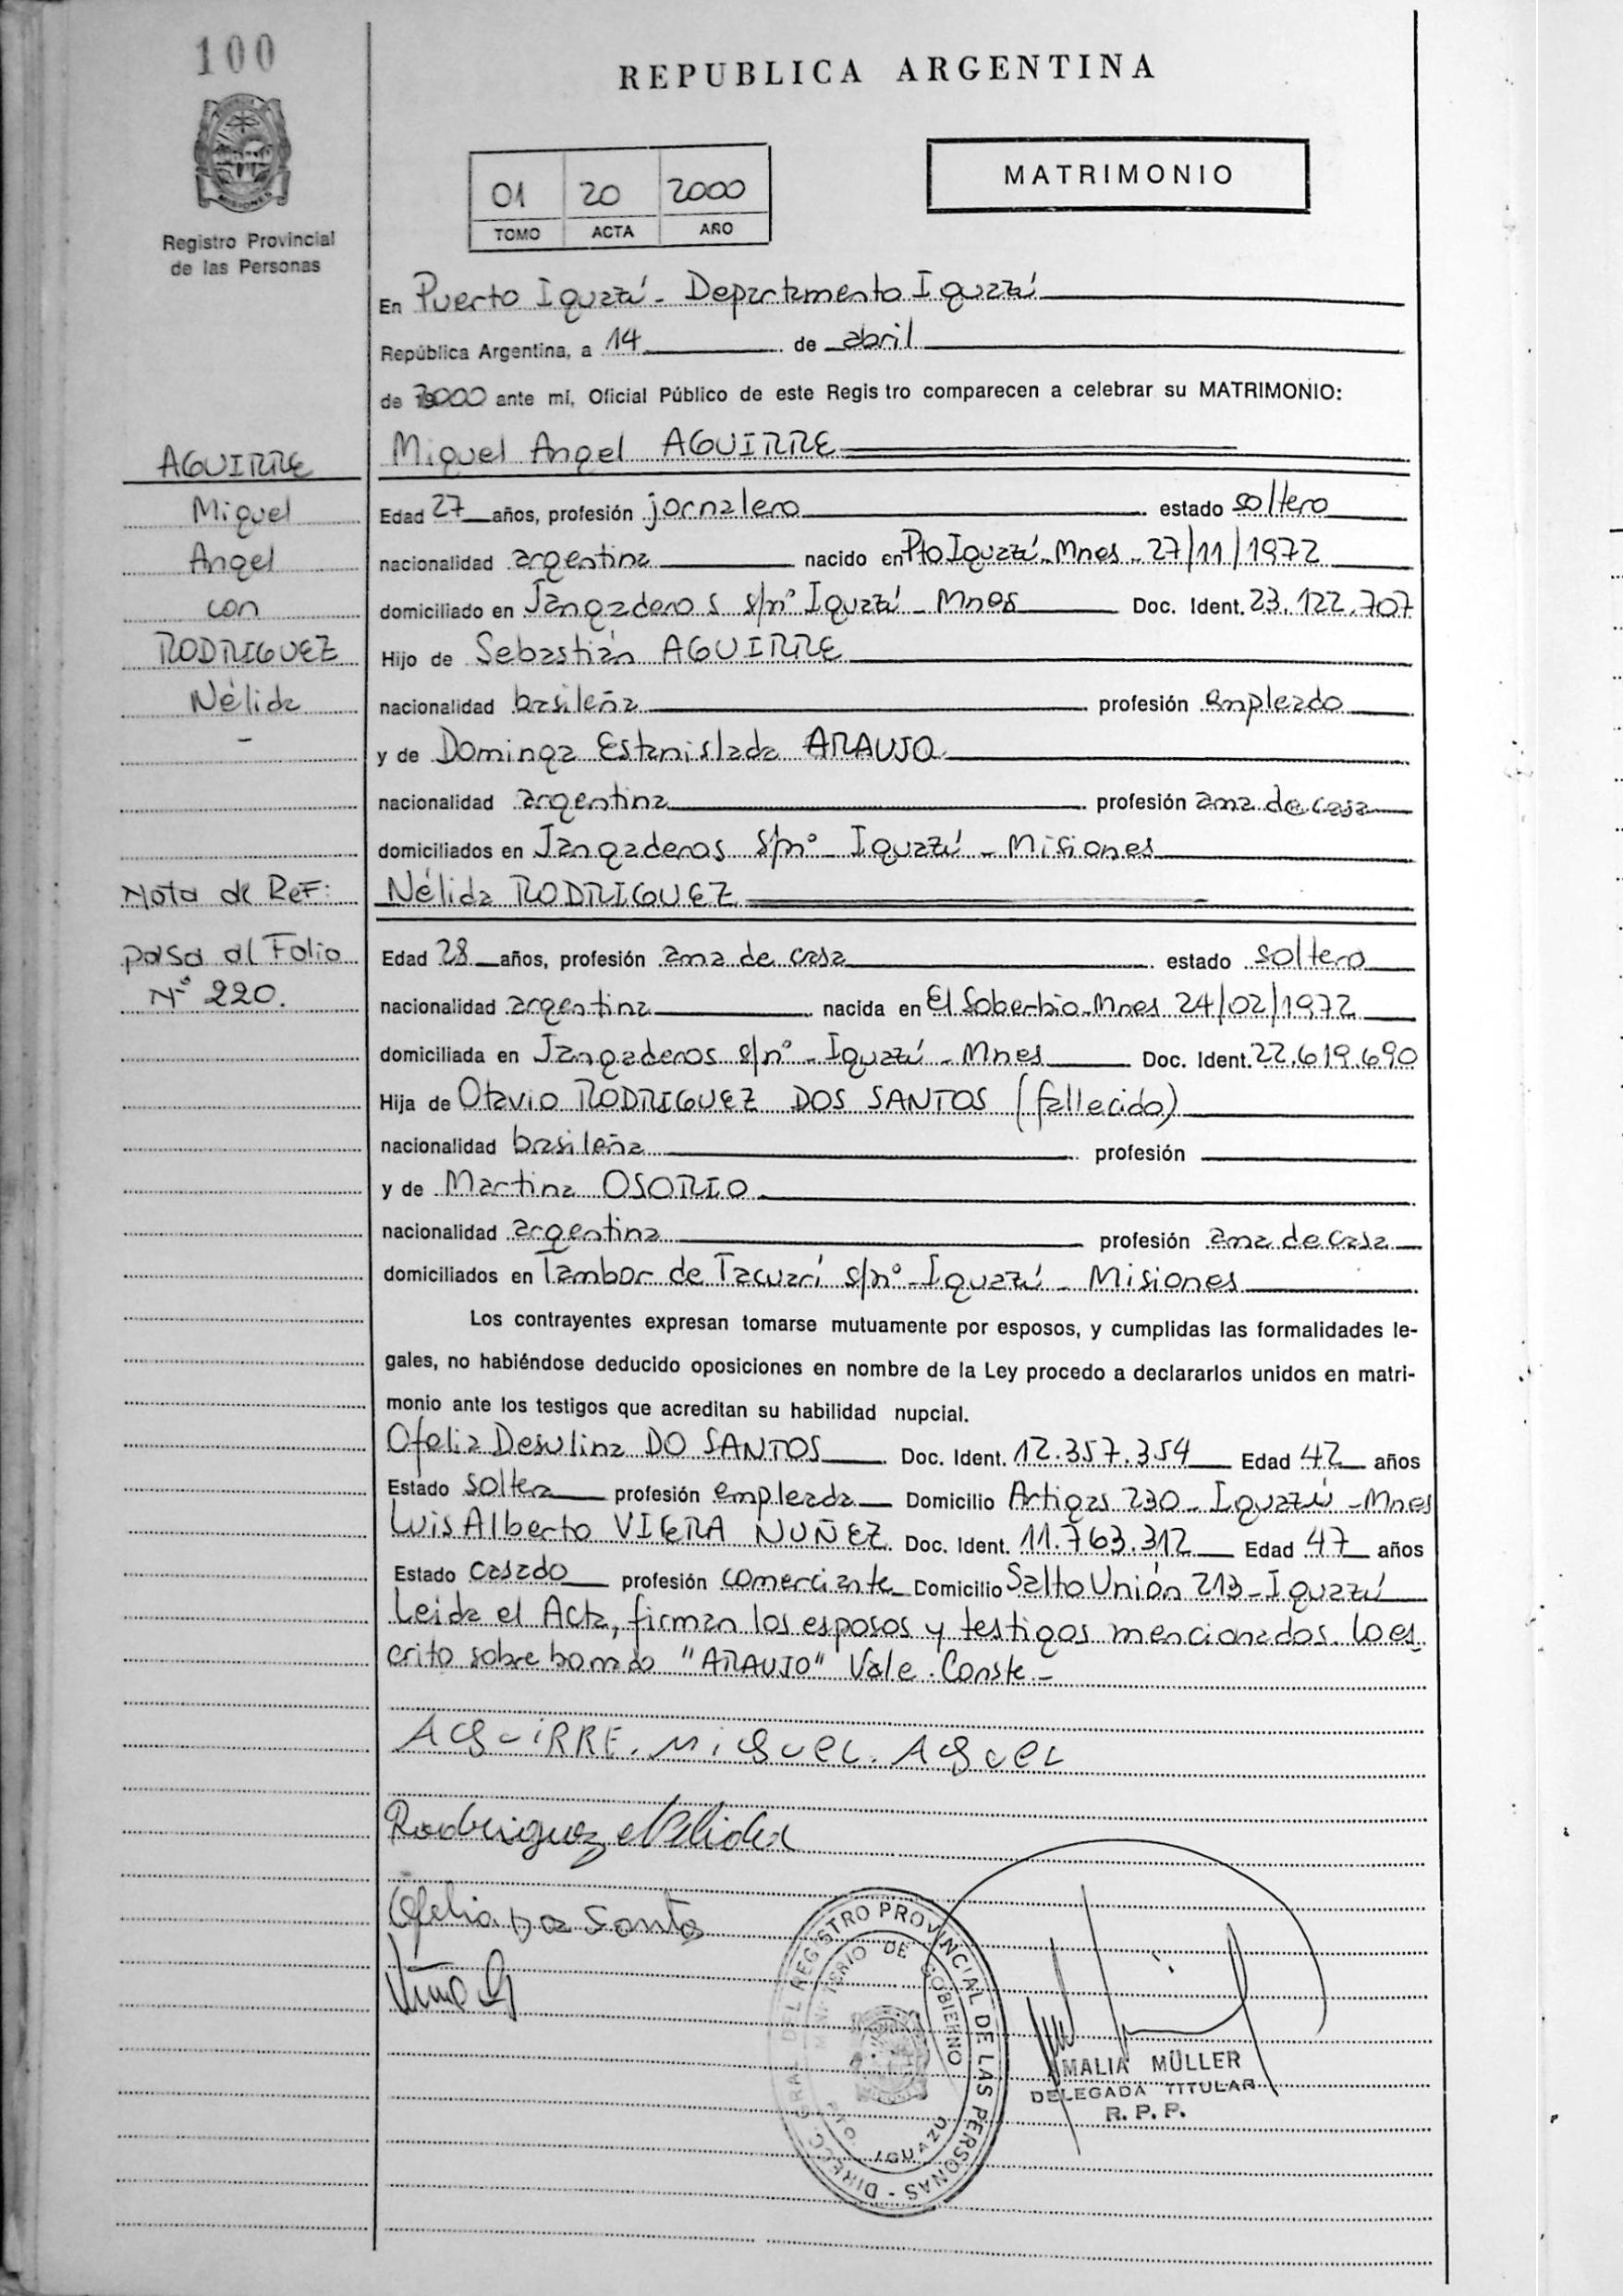 100
REPUBLICA ARGENTINA
MATRIMONIO
01 20 2000
TOMO ACTA AÑO
MISIONES
Registro Provincial
de las Personas
En Puerto Iguazú - Departamento Iguazú
República Argentina, a 14 de abril
de 2000 ante mí, Oficial Público de este Regis tro comparecen a celebrar su MATRIMONIO:
AGUIRRE
Miguel
Angel
con
RODRIGUEZ
Nélida
-
Nota de Ref:
pasa al Folio
Nº 220.
Miguel Angel AGUIRRE
Edad 27 años, profesión jornalero estado soltero
nacionalidad argentina nacido en Pto Iguazú - Mnes - 27/11/1972
domiciliado en Jangaderos s/nº Iguazú - Mnes Doc. Ident. 23.122.707
Hijo de Sebastián AGUIRRE
nacionalidad brasileña profesión empleado
y de Dominga Estanislada ARAUJO
nacionalidad argentina profesión ama de casa
domiciliados en Jangaderos s/nº - Iguazú - Misiones
Nélida RODRIGUEZ
Edad 28 años, profesión ama de casa estado soltero
nacionalidad argentina nacida en El Soberbio - Mnes 24/02/1972
domiciliada en Jangaderos s/nº - Iguazú - Mnes Doc. Ident. 22.619.690
Hija de Otavio RODRIGUEZ DOS SANTOS (fallecido)
nacionalidad brasileña profesión
y de Martina OSORIO
nacionalidad argentina profesión ama de casa
domiciliados en Tambor de Tacuarí s/nº - Iguazú - Misiones
Los contrayentes expresan tomarse mutuamente por esposos, y cumplidas las formalidades le-
gales, no habiéndose deducido oposiciones en nombre de la Ley procedo a declararlos unidos en matri-
monio ante los testigos que acreditan su habilidad nupcial.
Ofelia Desulina DO SANTOS Doc. Ident. 12.357.354 Edad 42 años
Estado soltera profesión empleada Domicilio Artigas 230 - Iguazú - Mnes
Luis Alberto VIERA NUÑEZ Doc. Ident. 11.763.312 Edad 47 años
Estado casado profesión comerciante Domicilio Salto Unión 213 - Iguazú
Leida el Acta, firman los esposos y testigos mencionados. Lo es
crito sobre borrado "ARAUJO" Vale. Conste -
AGUIRRE. MIGUEL. AGUEL
Rodriguez Nelida
Ofelia Do Santo
DIRECC. GRAL. DEL REGISTRO PROVINCIAL DE LAS PERSONAS -
MINISTERIO DE GOBIERNO
IGUAZU
AMALIA MÜLLER
DELEGADA TITULAR
R. P. P.